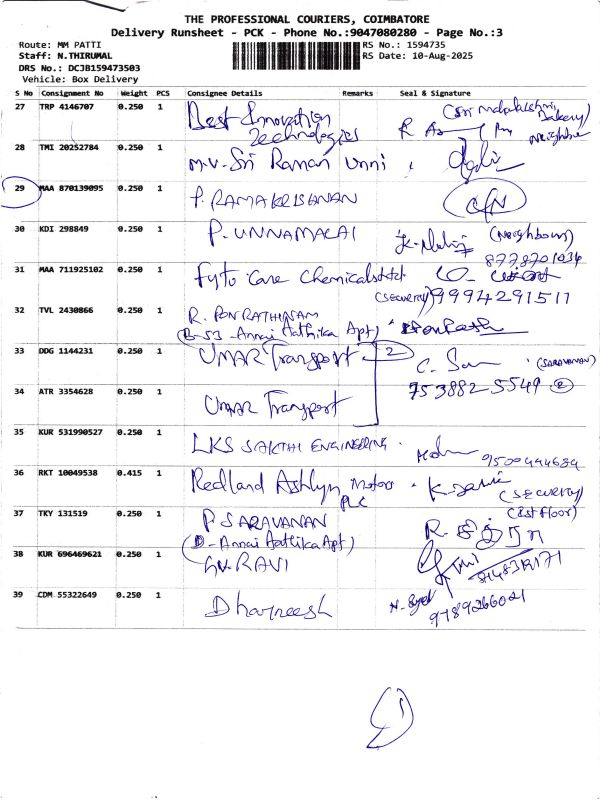 THE PROFESSIONAL COURIERS, COIMBATORE
Delivery Runsheet - PCK - Phone No.:9047080280 - Page No.:3
Route: MM PATTI
RS No.: 1594735
Staff: N.THIRUMAL
RS Date: 10-Aug-2025
DRS No.: DCJB159473503
Vehicle: Box Delivery
S No Consignment No Weight PCS Consignee Details Remarks Seal & Signature
27 TRP 4146707 0.250 1 Best Innovation
Technologies
(Sri Mahalakshmi
Bakery)
Neighbour
28 TMI 20252784 0.250 1 M.V. Sri Raman Unni
29 MAA 870139095 0.250 1 P. RAMAKRISHNAN
30 KDI 298849 0.250 1 P. UNNAMALAI (Neighbour)
8778701034
31 MAA 711925102 0.250 1 Fyto Care Chemicals
(Security) 9994291511
32 TVL 2430866 0.250 1 R. PONRATHINAM
(B-53 - Annai Aathika Apt)
33 DDG 1144231 0.250 1 UMAR Transport 2 (SARAVANAN)
753882 5549 2
34 ATR 3354628 0.250 1 Umar Transport
35 KUR 531990527 0.250 1 LKS SAKTHI ENGINEERING
9500444684
36 RKT 10049538 0.415 1 Redland Ashlyn Motors
PLC
(SECURITY)
37 TKY 131519 0.250 1 P SARAVANAN (Ist Floor)
(D - Annai Aathika Apt)
38 KUR 696469621 0.250 1 G.K. RAVI
39 CDM 55322649 0.250 1 Dharneesh
9789266021